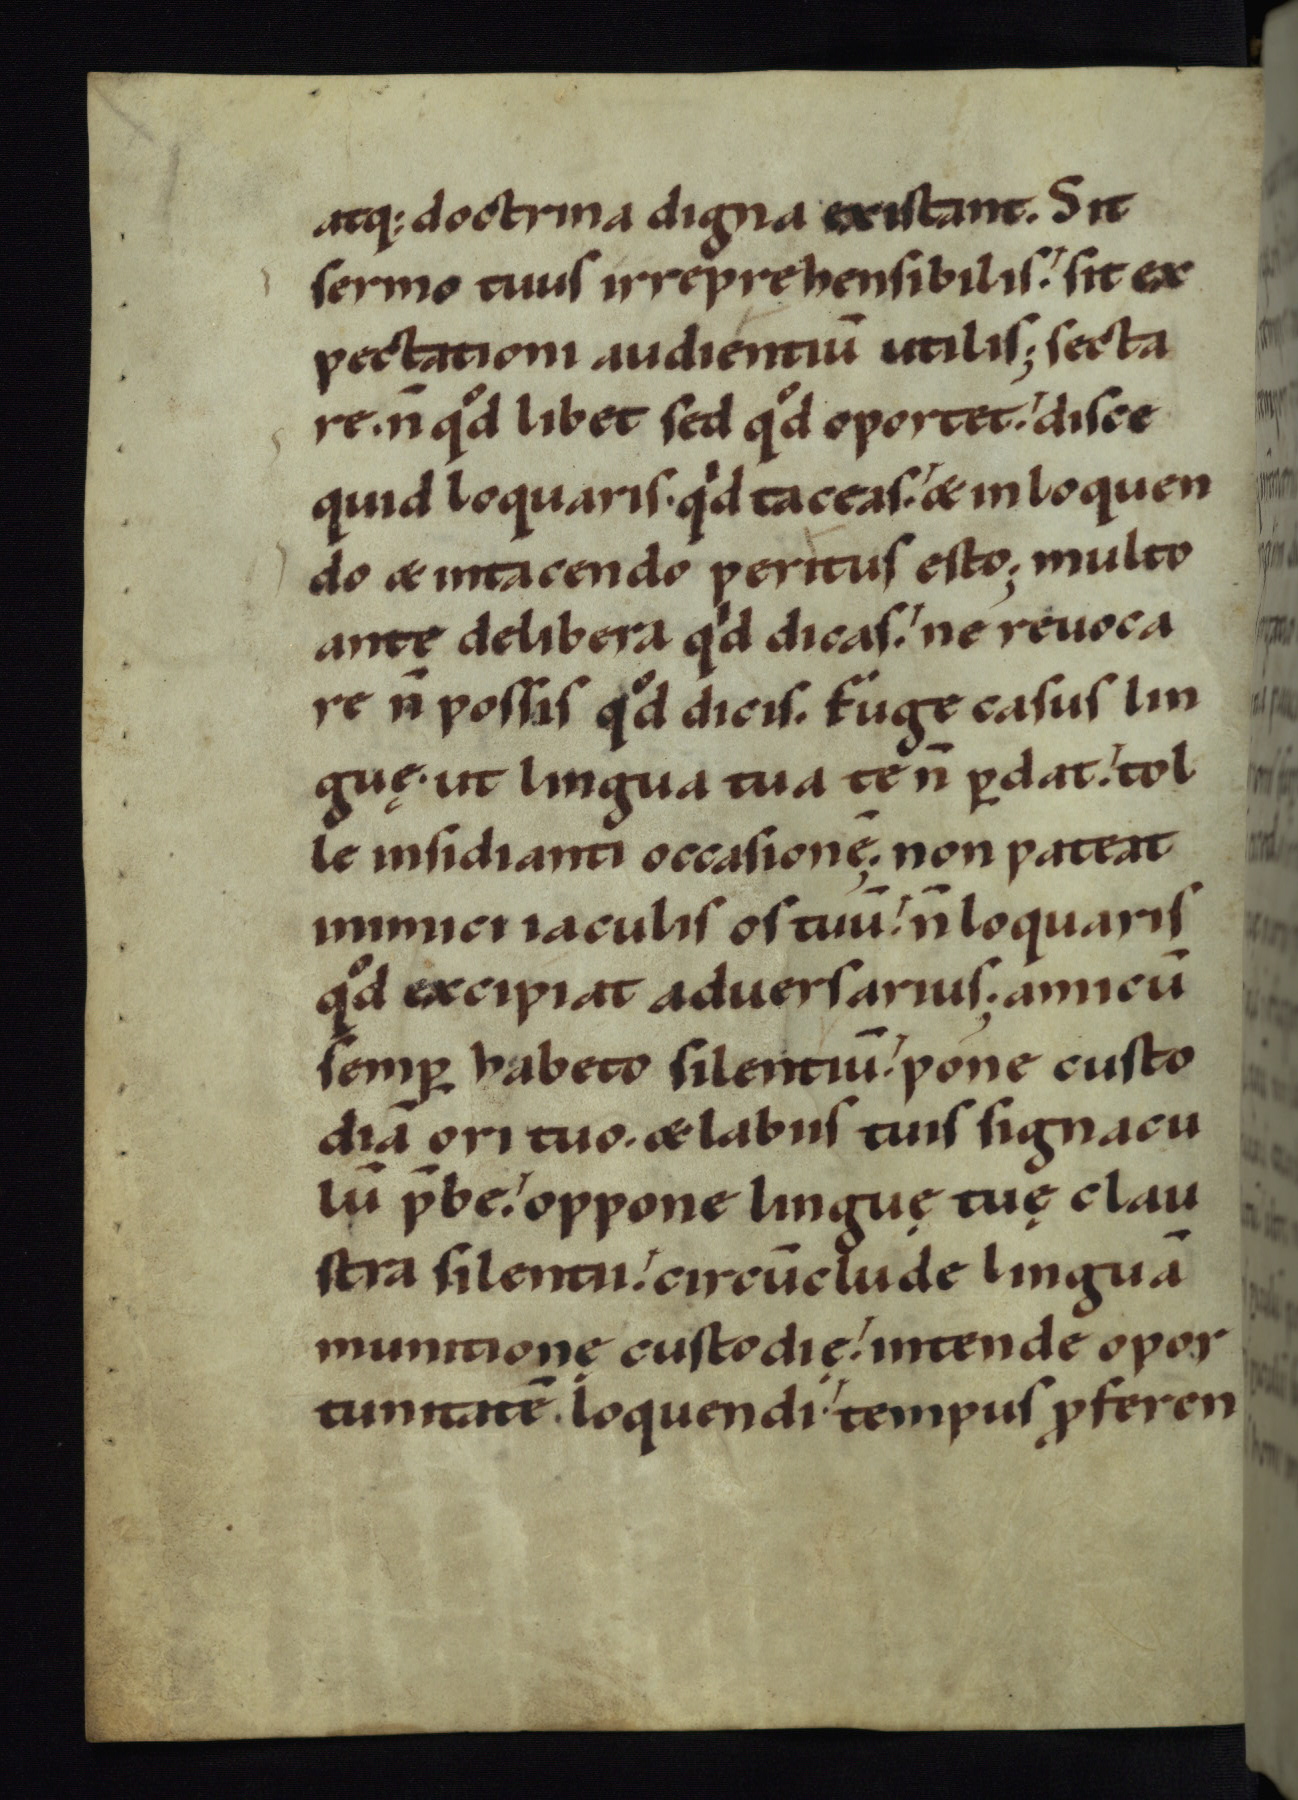 atq; doctrina digna existant. Sit
sermo tuus irreprehensibilis. sit ex
pectationi audientiū utilis; secta
re. n̄ qͦd libet sed qͦd oportet. disce
quid loquaris. qͥd taceas. & in loquen
do & intacendo peritus esto; multo
ante delibera qͥd dicas. ne reuoca
re n̄ possis qͦd dicis. Fuge casus lin
guę. ut lingua tua te n̄ ꝑdat. tol
le insidianti occasionē; non pateat
inimici iaculis os tuū. n̄ loquaris
qͦd excipiat aduersarius; amicū
semꝑ habeto silentiū. pone custo
diā ori tuo. & labiis tuis signacu
lū p̄be. oppone linguę tuę clau
stra silentii. circūclude linguā
munitione custodię. intende opor
tunitatē loquendi. tempus ꝓferen